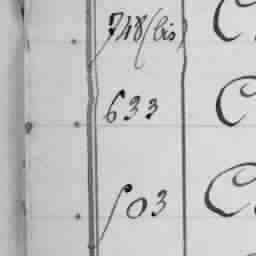 748 (bis) C
633 C
503 C